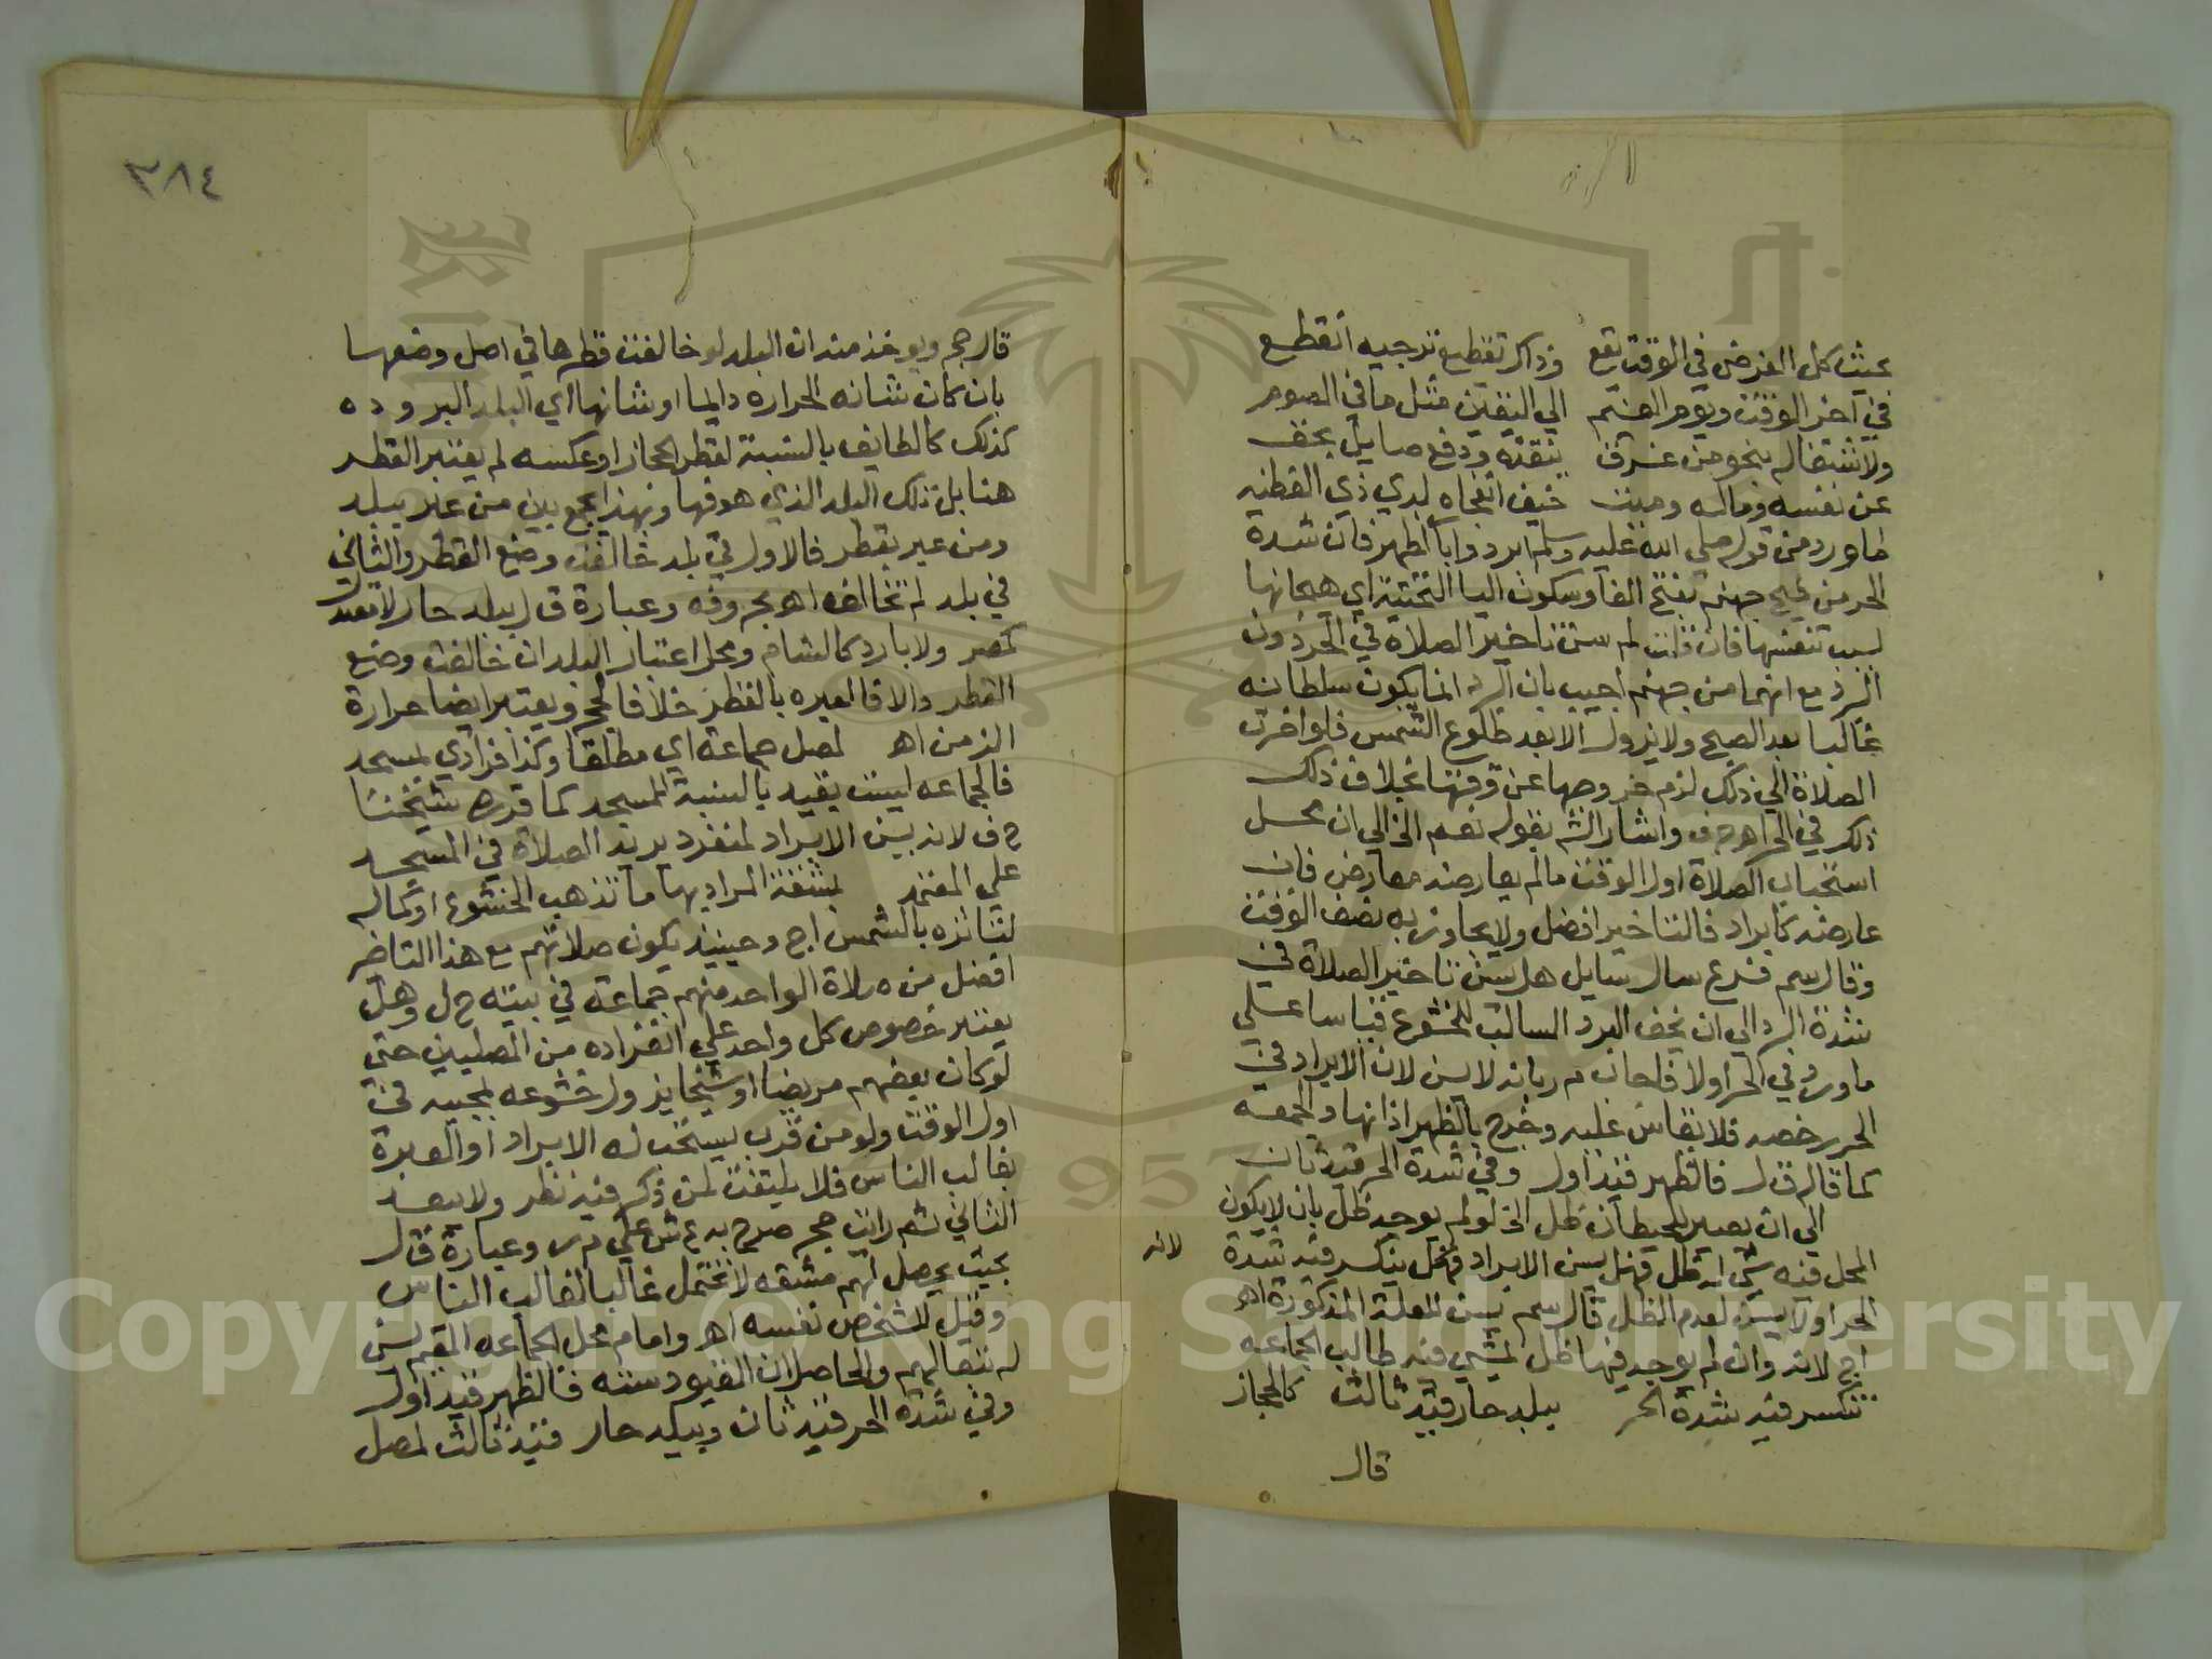 بحيث كل الفرض في الوقت يقع وذاكر تقطيع ترجيه انقطع
في اخر الوقت ويوم الغيم الي اليقين مثل ما في الصوم
ولاشتغاله بنحو من غرق ينقذه ودفع صايل بحق
عن نفسه وماله وميت خيف انفجاه لدي ذي الفطنه
لما ورد من قوله صلي الله عليه وسلم ابردوا بالظهر فان شدة
الحر من فيح جهنم بفتح الفا وسكون اليا التحتية اي هيجانها
لسبب تنفسها فان قلت لم سن تاخير الصلاة في الحر دون
البرد مع انهما من جهنم اجيب بان البرد انما يكون سلطانه
غالبا بعد الصبح ولا يزول الا بعد طلوع الشمس فلو اخرت
الصلاة الي ذلك لزم خروجها عن وقتها بخلاف ذلك
ذكر في الحر اهـ ح ف واشار الش بقوله نعم الخ الي ان محل
استحباب الصلاة اول الوقت مالم يعارضه معارض فان
عارضه كابراد فالتاخير افضل ولا يجاوز به نصف الوقت
وقال سم فرع سال سايل هل يسن تاخير الصلاة في
شدة البرد الي ان يخف البرد السالب للخشوع قياسا علي
ما ورد في الحر اولا فاجاب م ر بانه لا يسن لان الابراد في
الحر رخصه فلا يقاس عليه وخرج بالظهر اذانها والجمعه
كما قاله ق ل فالظهر قيد اول وفي شدة الحر قيد ثان
الي ان يصير للحيطان ظل الخ لو لم يوجد ظل بان لا يكون
المحل فيه شي له ظل فهل يسن الابراد فهل ينكسر فيه شدة لانه
الحر اولا يسن لعدم الظل قال سم يسن للعلة المذكورة اهـ
اج لانه وان لم يوجد فيها ظل يمشي فيه طالب الجماعه
تنكسر فيه شدة الحر ببلد حار قيد ثالث كالحجاز
قال
٣٨٤
قال حج ويوخذ منه ان البلد لو خالفت قطرها في اصل وضعها
بان كان شانه الحراره دايما وشانها اي البلد البروده
كذلك كالطايف بالنسبة لقطر الحجاز او عكسه لم يعتبر القطر
هنا بل تلك البلد الذي هو فيها وبهذا يجمع بين من عبر ببلد
ومن عبر بقطر فالاول في بلد خالفت وضع القطر والثاني
في بلد لم تخالفه اهـ بحروفه وعبارة ق ل ببلد حار لا معتدل
كمصر ولا بارد كالشام ومحل اعتبار البلد ان خالفت وضع
القطر والا فالعبره بالقطر خلافا لحج ويعتبر ايضا حرارة
الزمن اهـ لمصل جماعة اي مطلقا وكذا فرادي لمسجد
فالجماعه ليست بقيد بالنسبة للمسجد كما قرره شيخنا
ح ف لانه يسن الابراد لمنفرد يريد الصلاة في المسجد
علي المعتمد بمشقة المراد بها ما تذهب الخشوع او كماله
لتاذيه بالشمس اج وحينيذ يكون صلاتهم مع هذا التاخر
افضل من صلاة الواحد منهم جماعة في بيته ح ل وهل
يعتبر خصوص كل واحد علي انفراده من المصليين حتي
لو كان بعضهم مريضا او شيخا يزول خشوعه لمجيه في
اول الوقت ولو من قرب يستحب له الابراد او العبرة
بغالب الناس فلا يلتفت لمن ذكر فيه نظر ولا يبعد
الثاني ثم رايت حج صرح به ع ش علي م ر وعبارة ق ل
بحيث يحصل لهم مشقه لا تحتمل غالبا لغالب الناس
وقيل للشخص نفسه اهـ وامام محل الجماعه المقيم يسن
له تبعا لهم والحاصل ان القيود سته فالظهر قيد اول
وفي شدة الحر قيد ثان وببلد حار قيد ثالث لمصل
Copyright © King Saud University
1957